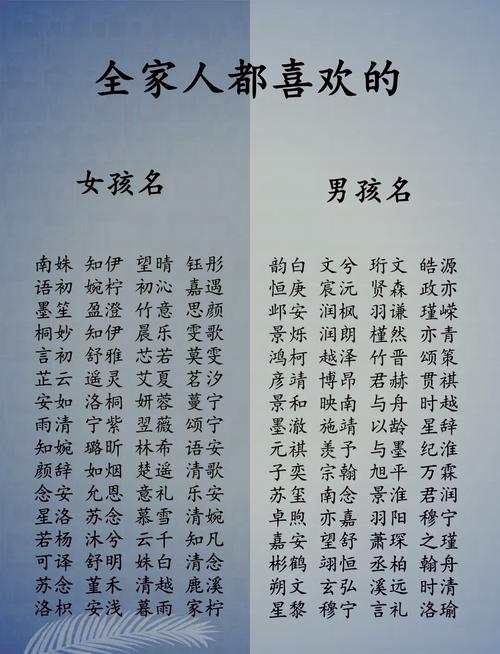 全家人都喜欢的
女孩名
南姝 知伊 望晴 钰彤
语初 婉柠 初沁 嘉遇
墨笙 盈澄 竹意 思颜
桐妙 知伊 晨乐 雯歌
言初 舒雅 芯若 莫雯
芷云 遥灵 艾夏 茗汐
安如 洛桐 妍蓉 蔓宁
雨清 宁紫 翌薇 颂宁
知婉 璐昕 林希 语安
颜辞 如烟 楚遥 清歌
念安 允恩 意礼 乐安
星洛 苏念 慕雪 清婉
若杨 沐兮 云千 知凡
可译 舒明 姝白 清念
苏念 堇禾 清越 鹿溪
洛枳 安浅 暮雨 家柠
男孩名
韵白 文兮 珩文 皓源
恒庚 宸沅 贤森 政亦
邺安 润枫 羽谦 瑾嵘
景烁 润朗 槿然 亦青
鸿柯 越泽 竹晋 颂策
彦靖 博昂 君赫 贯祺
景和 映南 与舟 时越
墨澈 施靖 以龄 星辞
元祺 羡予 与墨 纪淮
子奕 宗翰 旭平 万霖
苏玺 南念 景淮 君润
卓煦 亦嘉 羽阳 穆宁
嘉安 望舒 萧琛 之瑾
彬鹤 翊恒 丞柏 翰舟
朔文 玄弘 溪远 时清
星黎 穆宁 言礼 洛瑜